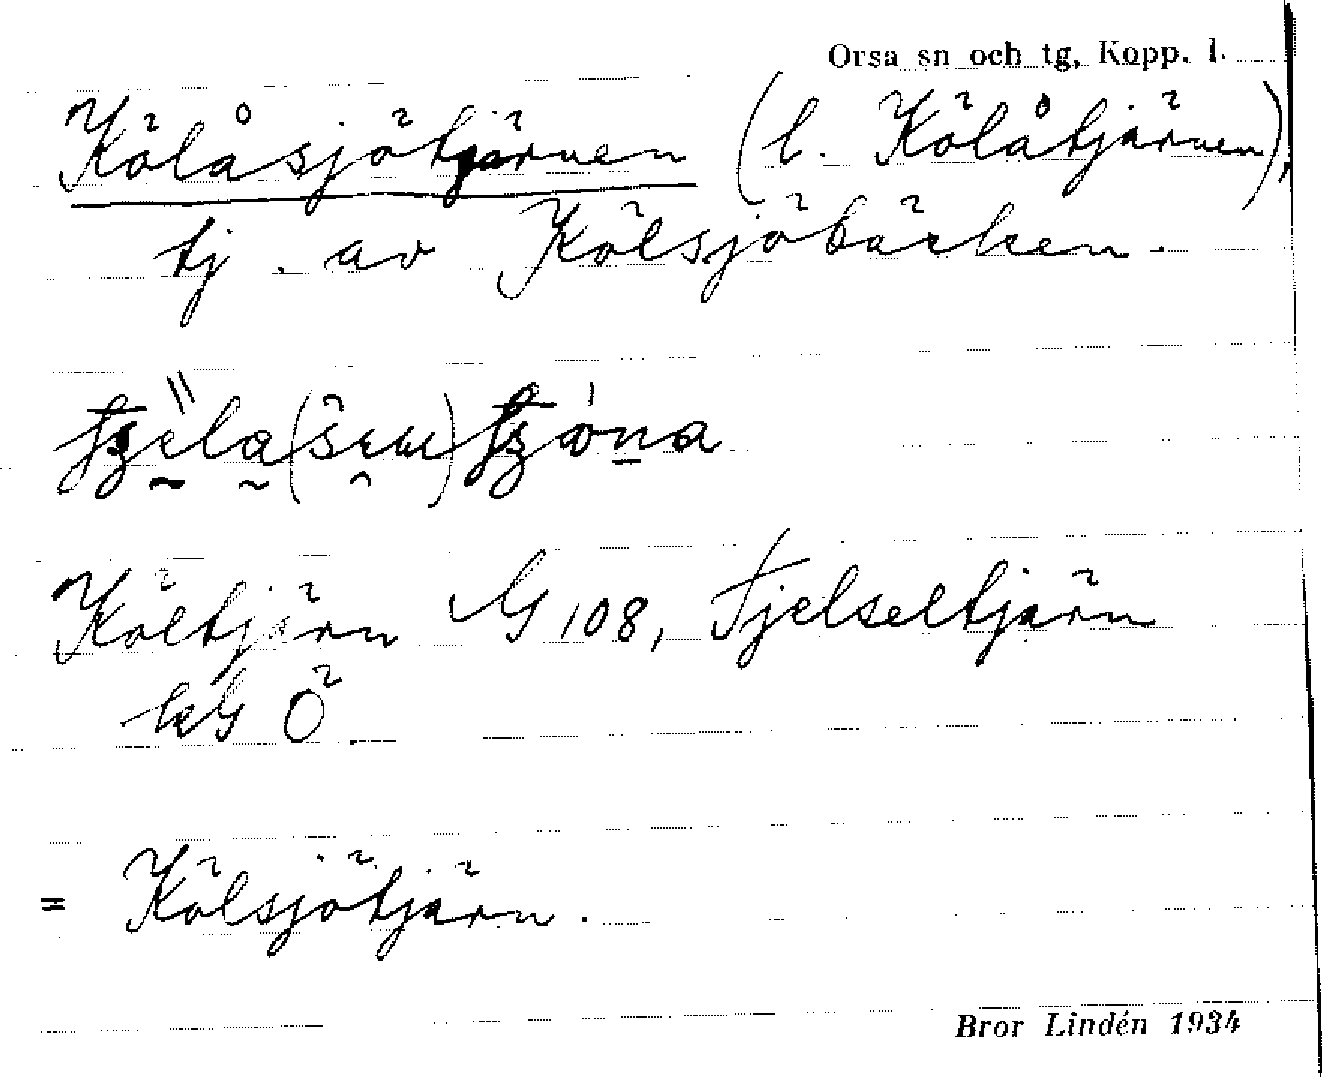 Orsa sn och tg, Kopp. l.
Kölåsjötjärnen (l. Kölåtjärnen),
tj. av Kölsjöbäcken.
Költjärn G 108, Tjelseltjärn
Ö.
= Kölsjötjärn.
Bror Lindén 1934